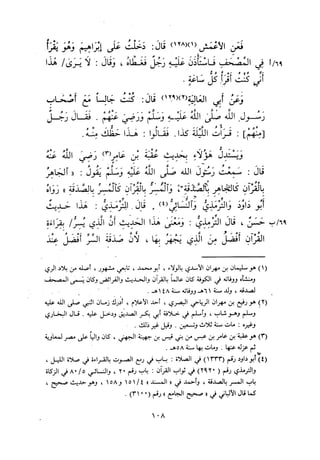 فَعَنِ الأَعْمَشِ (١)(١٢٨) قَالَ: دَخَلْتُ عَلَى إِبْرَاهِيمَ وَهُوَ يَقْرَأُ
٦٩/أ فِي الْمُصْحَفِ فَاسْتَأْذَنَ عَلَيْهِ رَجُلٌ فَغَطَّاهُ، وَقَالَ: لَا يَرَى/ هٰذَا
أَنِّي كُنْتُ أَقْرَأُ كُلَّ سَاعَةٍ.
وَعَنْ أَبِي الْعَالِيَةِ (٢)(١٢٩) قَالَ: كُنْتُ جَالِسًا مَعَ أَصْحَابِ
رَسُولِ اللهِ صَلَّى اللهُ عَلَيْهِ وَسَلَّمَ وَرَضِيَ عَنْهُمْ. فَقَالَ رَجُلٌ
[مِنْهُمْ]: قَرَأْتُ اللَّيْلَةَ كَذَا. فَقَالُوا: هٰذَا حَظُّكَ مِنْهُ.
وَيَسْتَدِلُّ هٰؤُلَاءِ بِحَدِيثِ عُقْبَةَ بْنِ عَامِرٍ (٣) رَضِيَ اللهُ عَنْهُ
قَالَ: سَمِعْتُ رَسُولَ اللهِ صَلَّى اللهُ عَلَيْهِ وَسَلَّمَ يَقُولُ: «الْجَاهِرُ
بِالْقُرْآنِ كَالْجَاهِرِ بِالصَّدَقَةِ، وَالْمُسِرُّ بِالْقُرْآنِ كَالْمُسِرِّ بِالصَّدَقَةِ» رَوَاهُ
أَبُو دَاوُدَ وَالتِّرْمِذِيُّ وَالنَّسَائِيُّ (٤). قَالَ التِّرْمِذِيُّ: هٰذَا حَدِيثٌ
٦٩/ب حَسَنٌ، قَالَ التِّرْمِذِيُّ: وَمَعْنَى هٰذَا الْحَدِيثِ أَنَّ الَّذِي يُسِرُّ/ بِقِرَاءَةِ
الْقُرْآنِ أَفْضَلُ مِنَ الَّذِي يَجْهَرُ بِهَا، لِأَنَّ صَدَقَةَ السِّرِّ أَفْضَلُ عِنْدَ
(١) هو سليمان بن مهران الأسدي بالولاء، أبو محمد، تابعي مشهور، أصله من بلاد الري
ومنشأه ووفاته في الكوفة كان عالماً بالقرآن والحديث والفرائض وكان يسمى المصحف
لصدقه، ولد سنة ٦١هـ ووفاته سنة ١٤٨هـ.
(٢) هو رفيع بن مهران الرياحي البصري، أحد الأعلام، أدرك زمان النبي صلى الله عليه
وسلم وهو شاب، وأسلم في خلافة أبي بكر الصديق ودخل عليه. قال البخاري
وغيره: مات سنة ثلاث وتسعين. وقيل غير ذلك.
(٣) هو عقبة بن عامر بن عبس من بني قيس بن جهينة الجهني، كان والياً على مصر لمعاوية
ثم عزله عنها. ومات بها سنة ٥٨هـ.
(٤) أبو داود رقم (١٣٣٣) في الصلاة: باب في رفع الصوت بالقراءة في صلاة الليل،
والترمذي رقم (٢٩٢٠) في ثواب القرآن: باب رقم ٢٠، والنسائي ٨٠/٥ في الزكاة
باب المسر بالصدقة، وأحمد في «المسند» ١٥١/٤ و ١٥٨، وهو حديث صحيح،
كما قال الألباني في «صحيح الجامع» رقم (٣١٠٠).
١٠٨